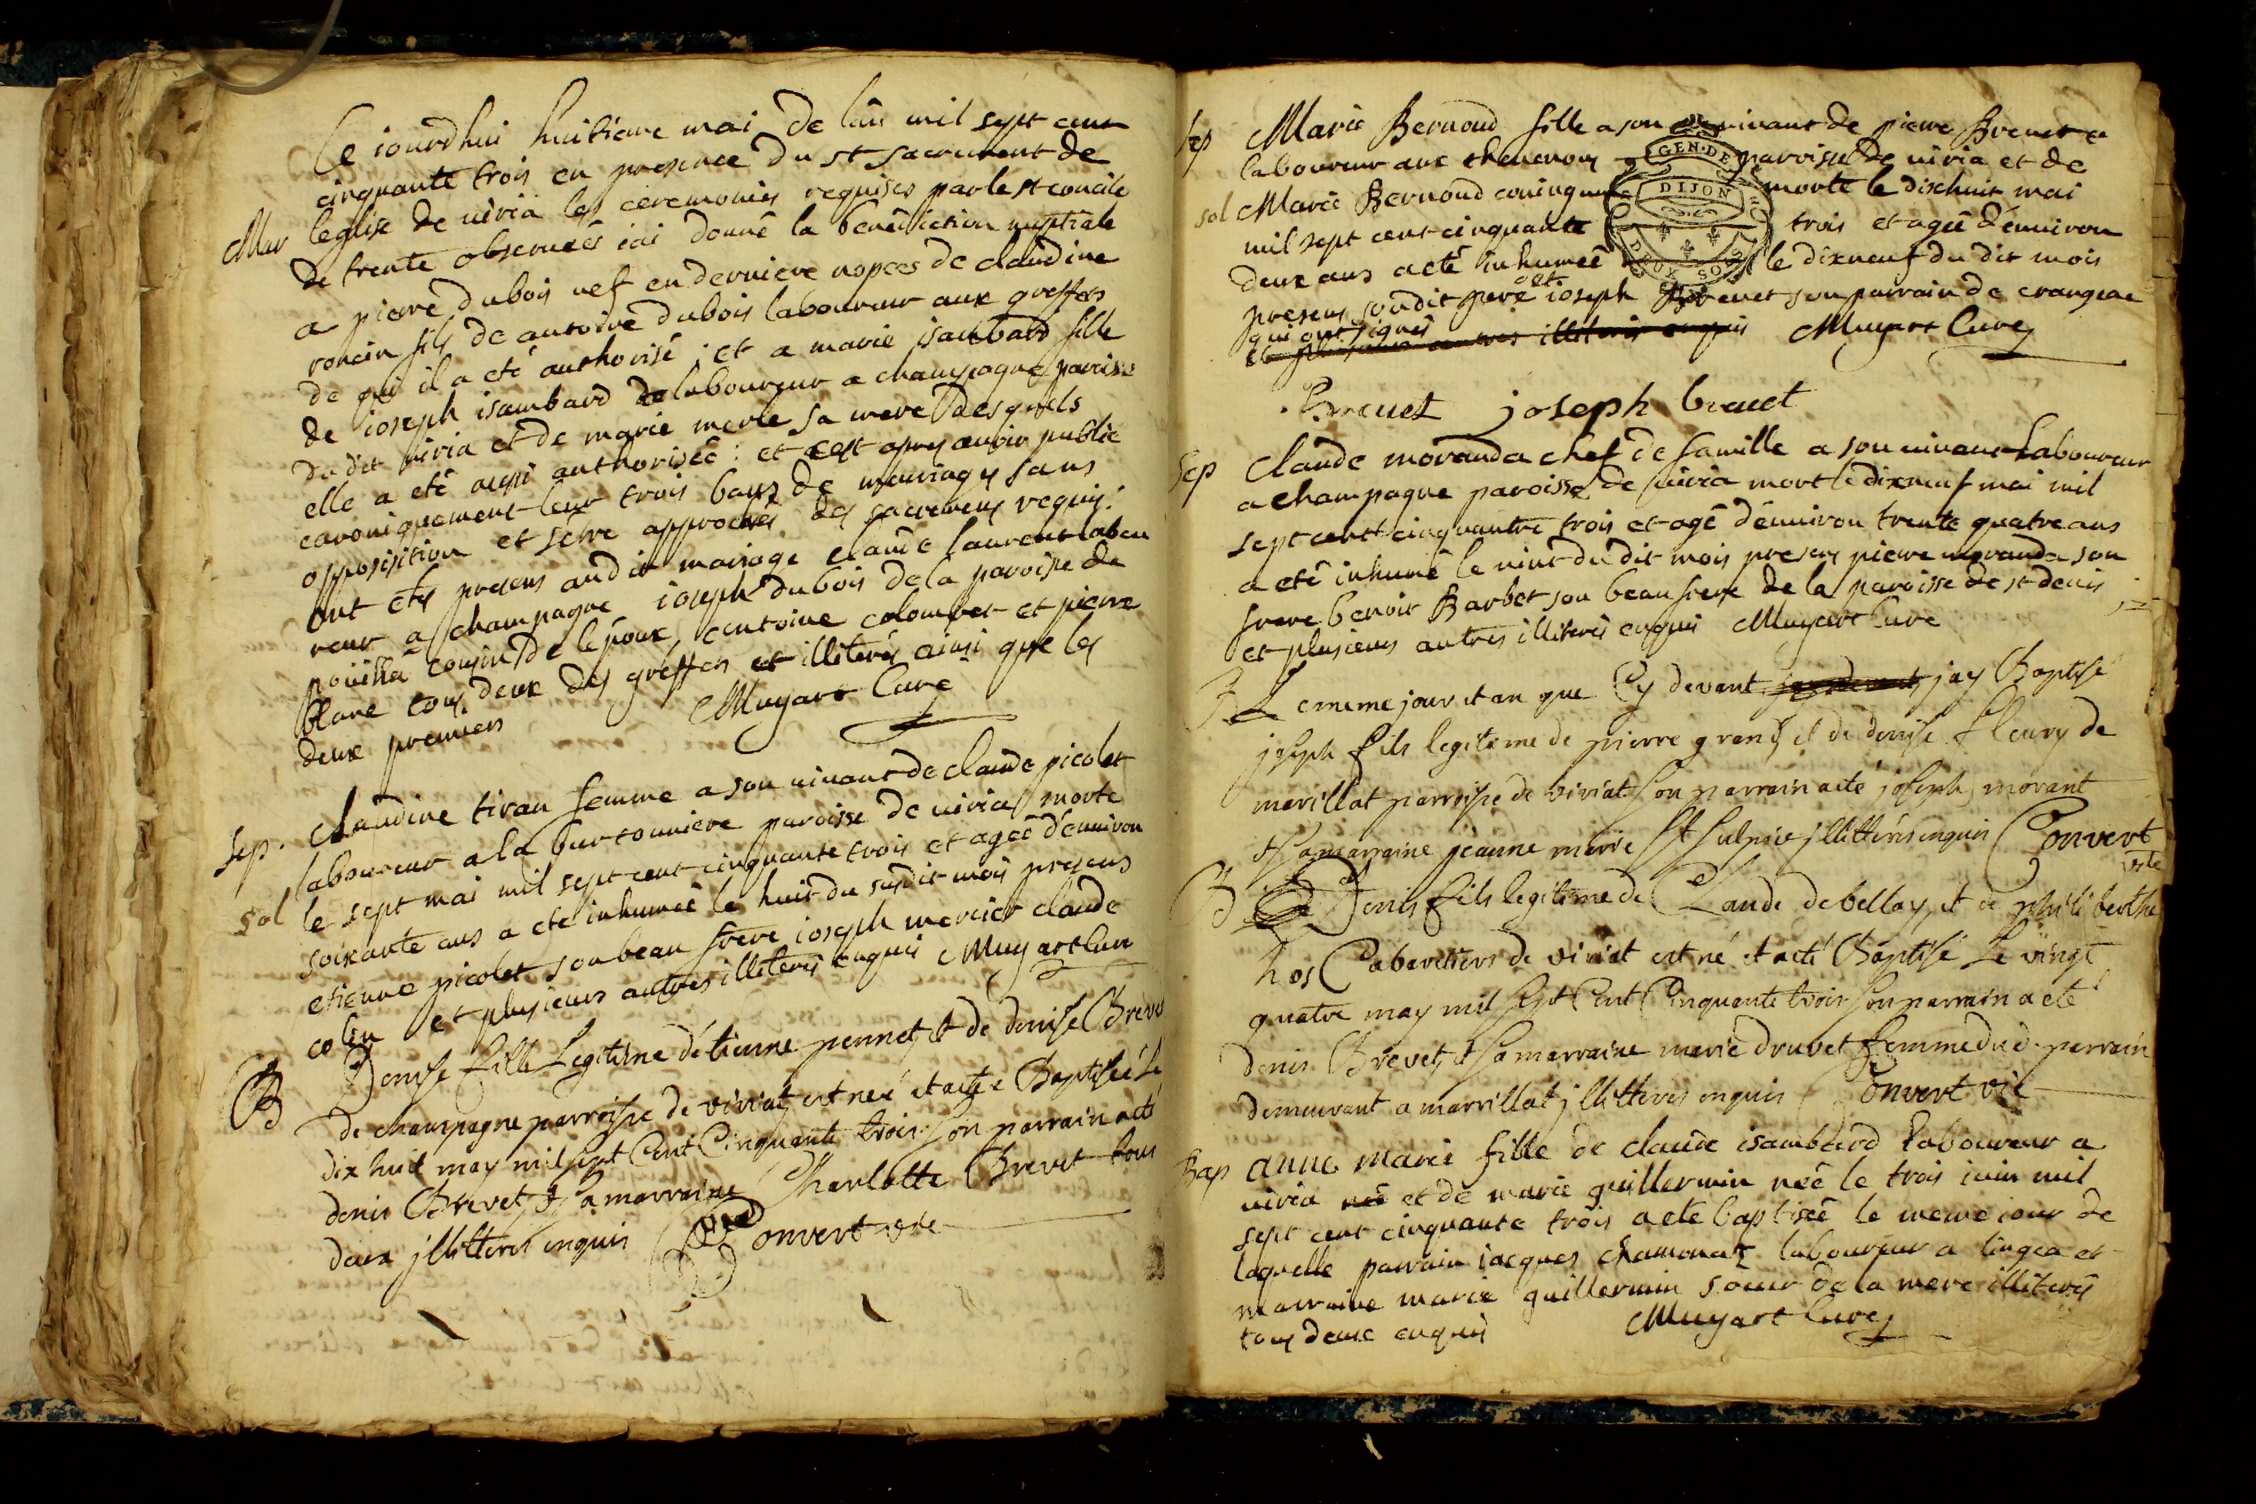 Ce iourdhui huitieme mai de lan mil sept cent
cinquante trois en presence du st sacrement de
Mar leglise de viria les ceremonies requises par le st concile
de trente observeés iai donné la bénédiction nuptiale
a pierre dubois vef en derniere nopces de claudine
roncin fils de antoine dubois laboureur aux greffets
de qui il a eté authorisé ; et a marie isambard fille
de ioseph isambard laboureur a champagne paroisse
du dit viria et de marie merle sa mere desquels
elle a eté aussi authorisée : et cest apres avoir publié
canoniquement leur trois bans de mariages sans
opposisition et sêtre approchés des sacremens requis :
ont etés presens au dit mariage claude laurent labou
reur a champagne ioseph dubois de la paroisse de
cousin de lépoux, antoine colombet et pierre
blanc tous deux des greffets et illiterés ainsi que les
deux premiers Muyart Curé
Sep. claudine tiran femme a son vivant de claude picolet
laboureur a la burtonniere paroisse de viria morte
sol le sept mai mil sept cent cinquante trois et ageé d'environ
soixante ans a eté inhumeé le huit du susdit mois presens
etienne picolet son beau frere ioseph mercier claude
colin et plusieurs autres illiterés enquis Muyart Cure
B Denise fille Legitime détienne pennet et de denise Brevet
de champagne parroisse de viriat est neé et a eté Baptisée Le
dix huit may mil sept Cent Cinquante trois son parrain a eté
denis Brevet et sa marraine Charlotte Brevet tous
deux jllitterés enquis Convert vre
Sep Marie Bernoud fille a son vivant de pierre Brevet
laboureur aux paroisse de viria et de
sol Marie Bernoud morte le dixhuit mai
mil sept cent cinquante trois et ageé d'environ
deux ans a eté inhumeé le dixneuf du dit mois
presens son dit pere et ioseph Brevet son parrain de crangeac
qui ont signés Muyart Curé
GEN. DE
DIJON
DEUX SOLS
Brevet joseph brevet
Sep Claude moranda chef de famille a son vivant Laboureur
a champagne paroisse de viria mort le dixneuf mai mil
sept cent cinquante trois et agé d'environ trente quatre ans
a eté inhumé le vint du dit mois presens pierre moranda son
frere benoit Barbet son beau frere de la paroisse de st denis
et plusieurs autres illiterés enquis Muyart Curé
B Le meme jour et an que Cy devant jay Baptisé
joseph fils legitime de pierre grand et de denise fleury de
marillat parroisse de viriat son parrain a eté joseph morant
et sa marraine jeanne marie St Sulpice jllittérés enquis Convert
vre
B Denis fils legitime de Claude debellay et de philiberthe
hos Cabaretiers de viriat est né et a eté Baptisé Le vingt
quatre may mil sept Cent Cinquante trois son parrain a eté
denis Brevet et sa marraine marie druvet femme dud. parrain
demeurant a marrillat jllitterés enquis Convert vic
Bap anne marie fille de claude isambard laboureur a
viria et de marie guillermin neé le trois iuin mil
sept cent cinquante trois a eté baptiseé le meme iour de
laquelle parrain iacques chamonat laboureur a lingea et
marraine marie guillermin soeur de la mere illiterés
tous deux enquis Muyart Curé